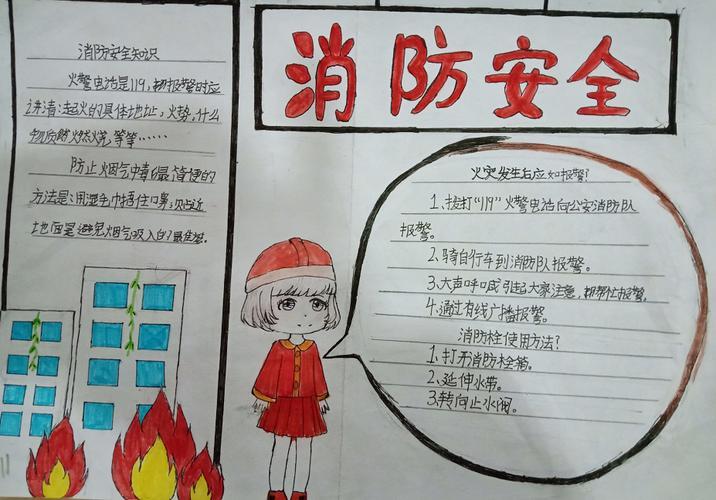 消防安全
消防安全知识
火警电话是119,初报警时应
讲清:起火的具体地址,火势,什么
物质燃烧,等等……
防止烟气中毒最简便的
方法是:用湿毛巾捂住口鼻,贴近
地面是避免烟气吸入的最佳
火灾发生后应如报警?
1、拔打“119”火警电话向公安消防队
报警。
2、骑自行车到消防队报警。
3、大声呼喊引起大家注意,报警。
4、通过有线广播报警。
消防栓使用方法?
1、打开消防栓箱。
2、延伸水带。
3、转向止水阀。